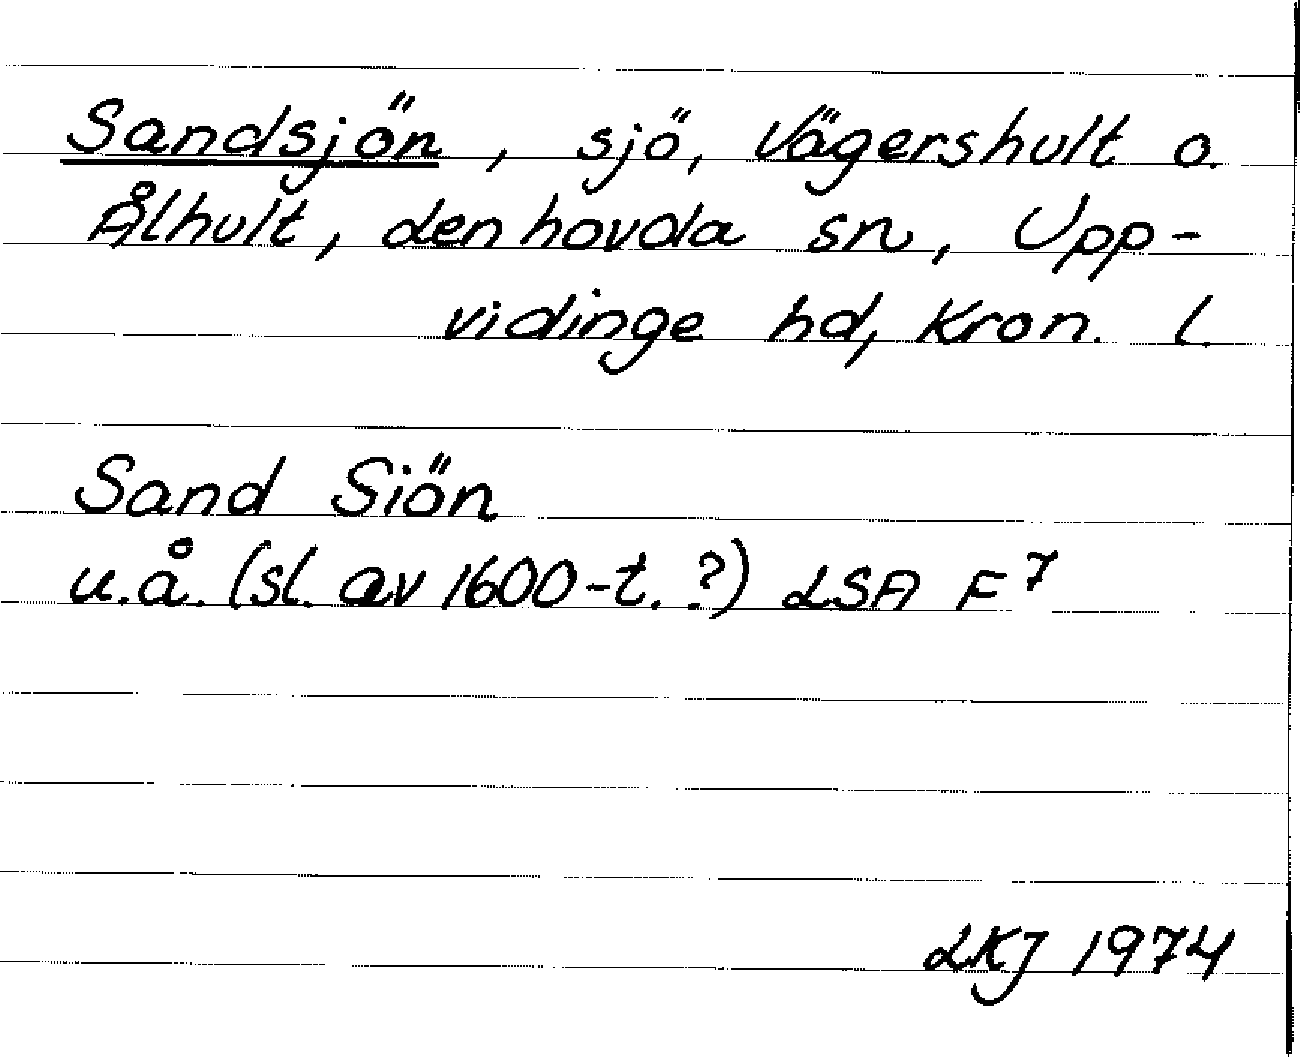 Sandsjön, sjö, Vägershult o.
Ålhult, Lenhovda sn, Upp-
vidinge hd, Kron. l.
Sand Siön
u.å. (sl. av 1600-t. ?) LSA F7
LKJ 1974